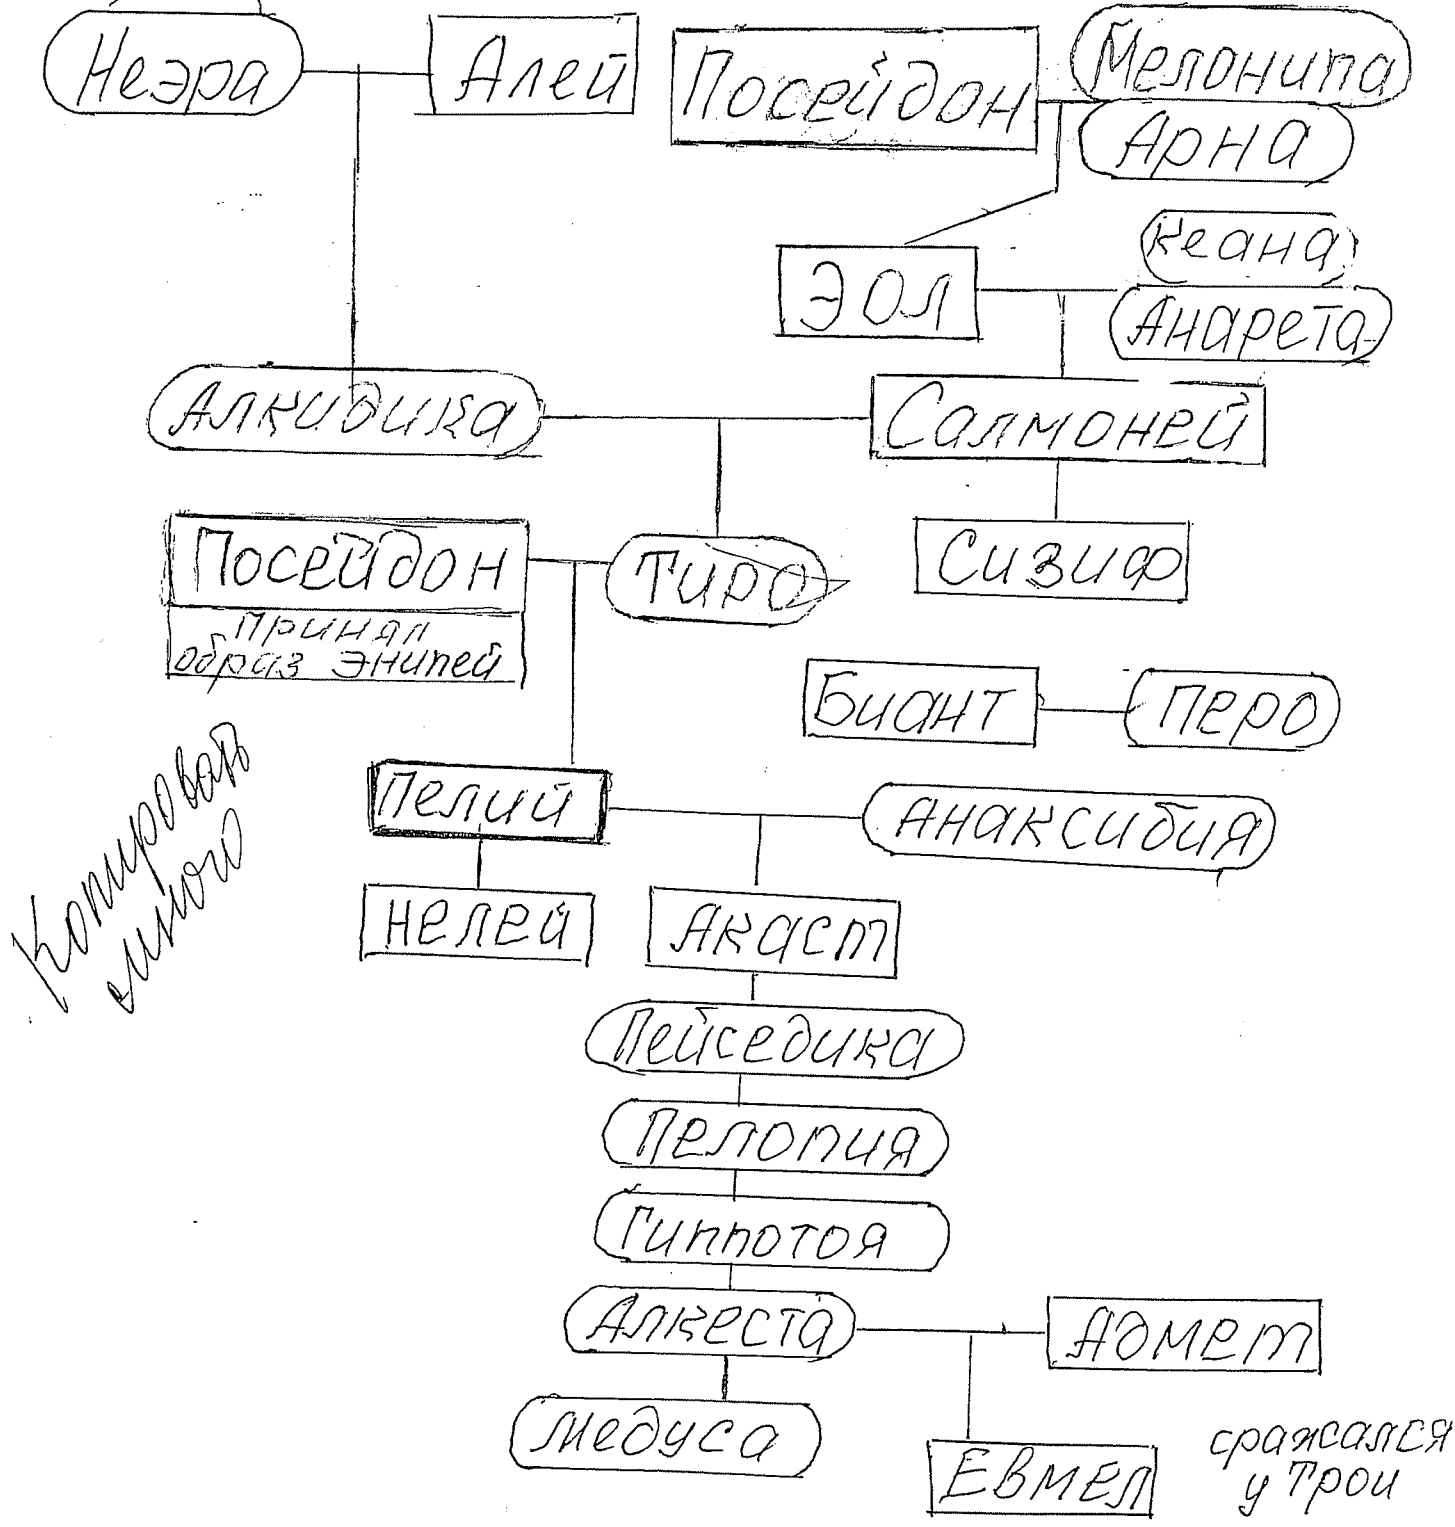 Неэра
Алей
Посейдон
Мелонипа
Арна
Эол
кеана
Анарета
Алкидика
Салмоней
Сизиф
Посейдон
принял
образ Энипей
Тиро
Биант
перо
Пелий
Анаксибия
Нелей
Акаст
Пейседика
Пелопия
Гиппотоя
Алкеста
Адмет
Медуса
Евмел
сражался
у Трои
Копировать
много